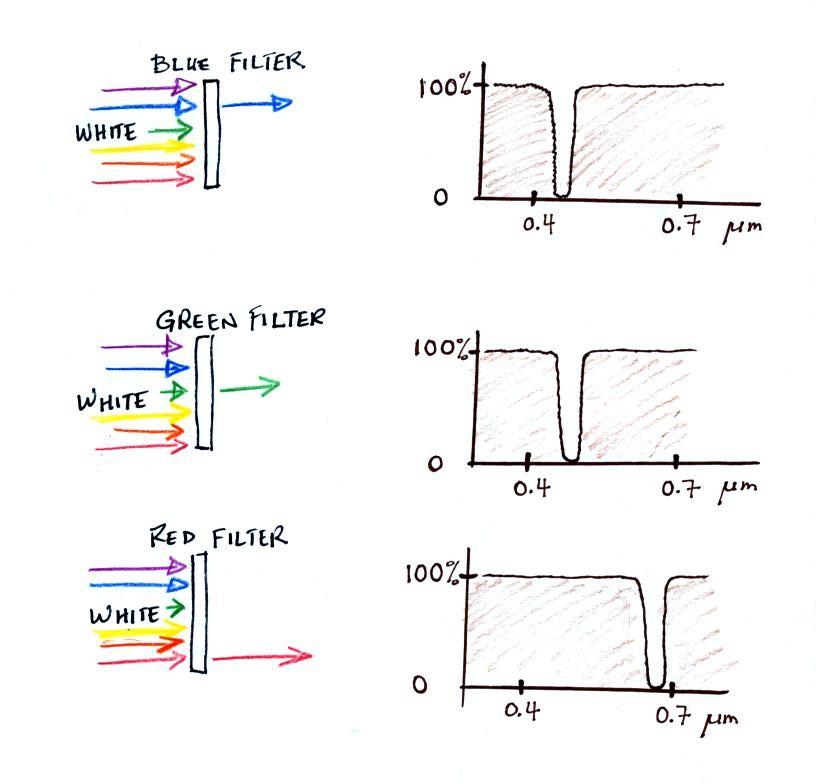 BLUE FILTER
WHITE
100%
0
0.4 0.7 μm
GREEN FILTER
WHITE
100%
0
0.4 0.7 μm
RED FILTER
WHITE
100%
0
0.4 0.7 μm